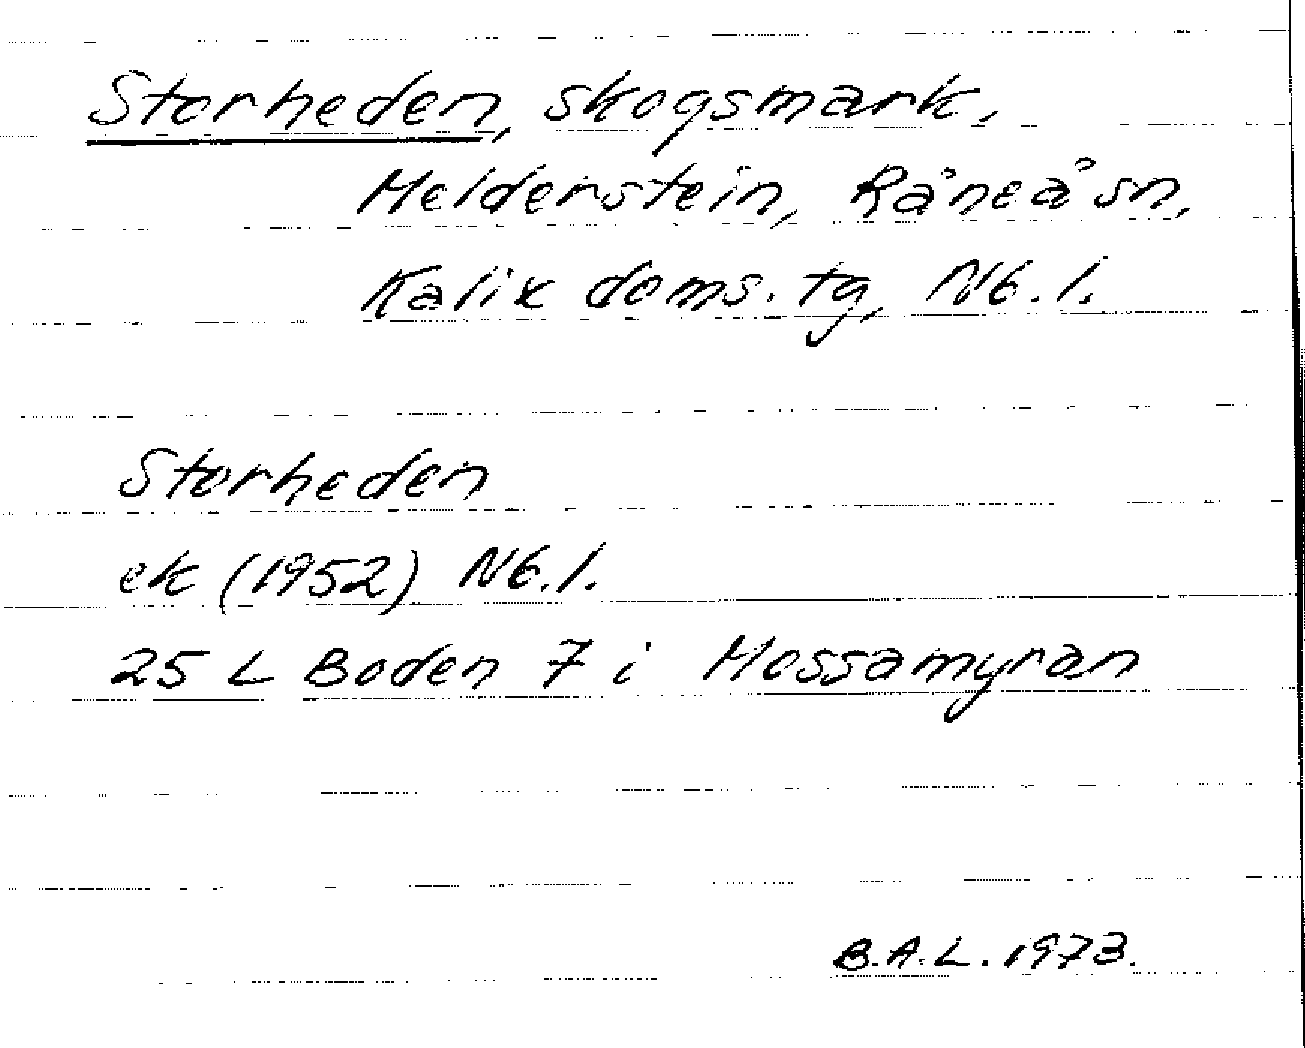 Storheden, skogsmark,
Melderstein, Råneå sn,
Kalix doms. tg, Nb. l.
Storheden
ek (1952) Nb. l.
25 L Boden 7 i Mossamyran
B.A.L. 1973.